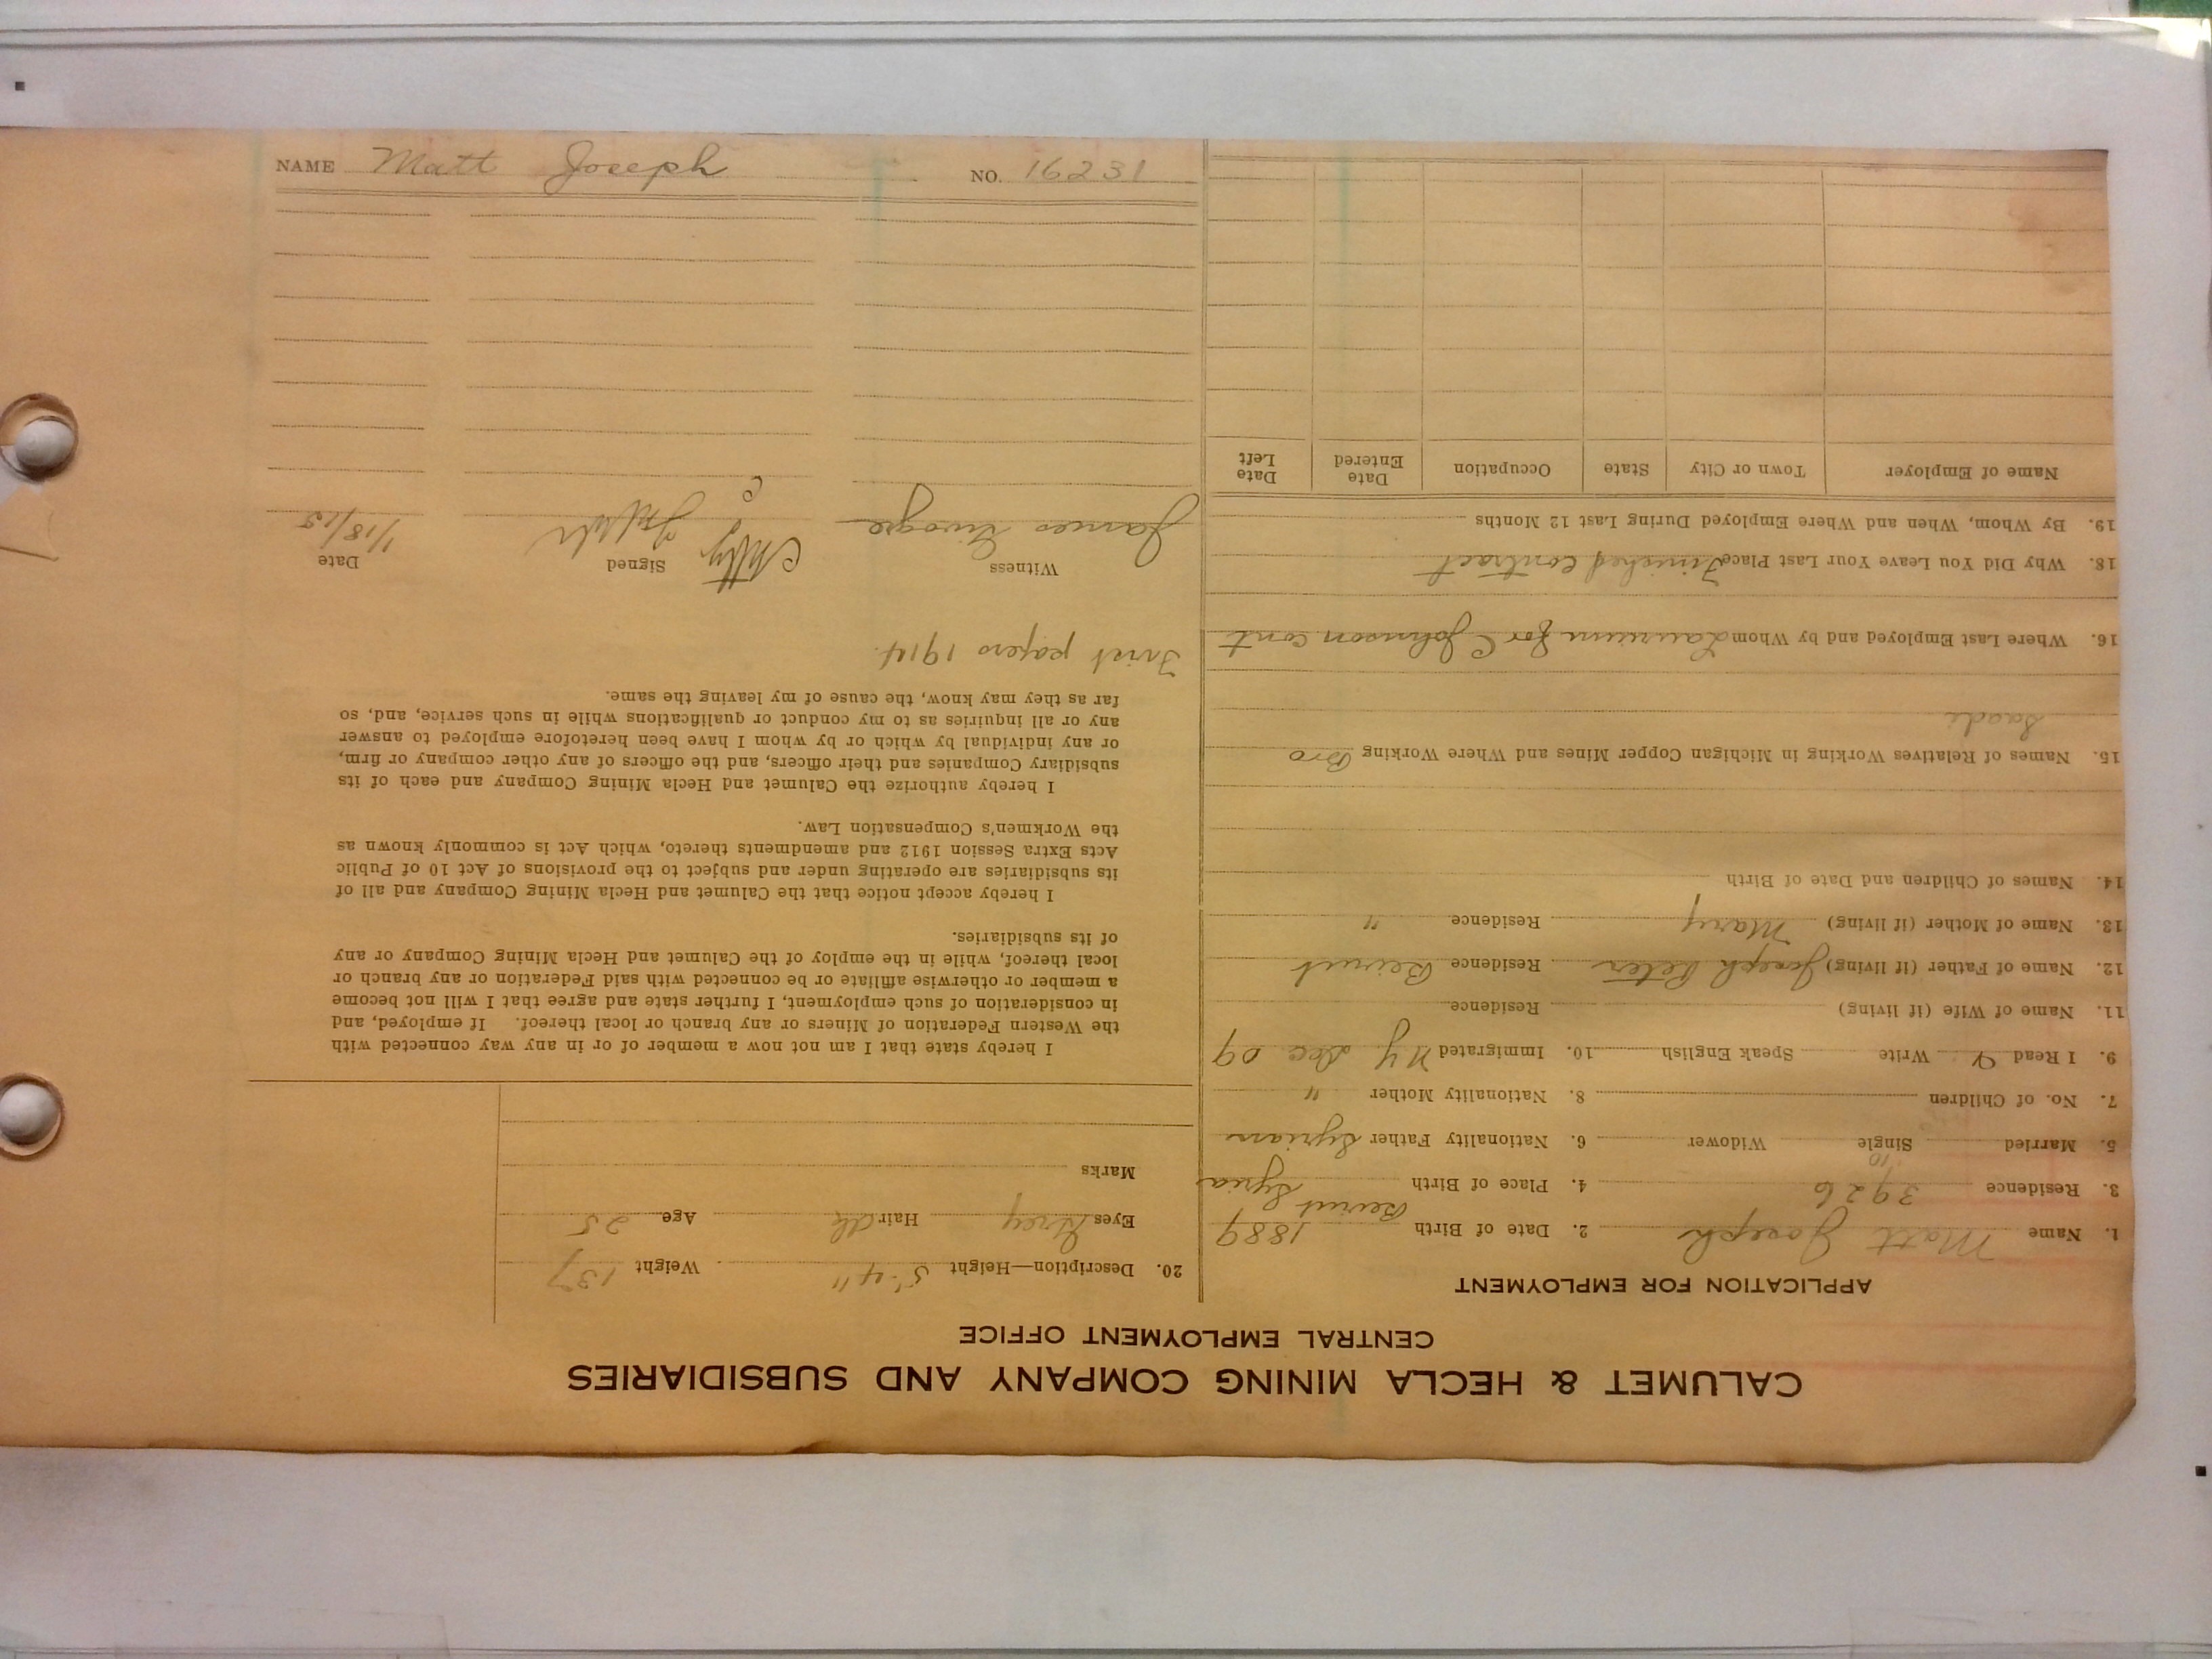 NAME Matt Joseph NO. 16231
CALUMET & HECLA MINING COMPANY AND SUBSIDIARIES
CENTRAL EMPLOYMENT OFFICE
APPLICATION FOR EMPLOYMENT
1. Name Matt Joseph 2. Date of Birth 1889
3. Residence 3926 4. Place of Birth Beirut Syria
5. Married Single Widower 6. Nationality Father Syrian
7. No. of Children 8. Nationality Mother "
9. I Read Write Speak English 10. Immigrated N.Y. Dec 09
11. Name of Wife (if living) Residence
12. Name of Father (if living) Joseph Peter Residence Beirut
13. Name of Mother (if living) Mary Residence "
14. Names of Children and Date of Birth
15. Names of Relatives Working in Michigan Copper Mines and Where Working Bro
Saadi
16. Where Last Employed and by Whom Laurium for C Johnson cont
18. Why Did You Leave Your Last Place Finished contract
19. By Whom, When and Where Employed During Last 12 Months
Name of Employer Town or City State Occupation Date Entered Date Left
20. Description—Height 5' 4" Weight 137
Eyes Grey Hair dk Age 25
Marks
I hereby state that I am not now a member of or in any way connected with
the Western Federation of Miners or any branch or local thereof. If employed, and
in consideration of such employment, I further state and agree that I will not become
a member or otherwise affiliate or be connected with said Federation or any branch or
local thereof, while in the employ of the Calumet and Hecla Mining Company or any
of its subsidiaries.
I hereby accept notice that the Calumet and Hecla Mining Company and all of
its subsidiaries are operating under and subject to the provisions of Act 10 of Public
Acts Extra Session 1912 and amendments thereto, which Act is commonly known as
the Workmen's Compensation Law.
I hereby authorize the Calumet and Hecla Mining Company and each of its
subsidiary Companies and their officers, and the officers of any other company or firm,
or any individual by which or by whom I have been heretofore employed to answer
any or all inquiries as to my conduct or qualifications while in such service, and, so
far as they may know, the cause of my leaving the same.
First papers 1914.
Witness Signed Date
James